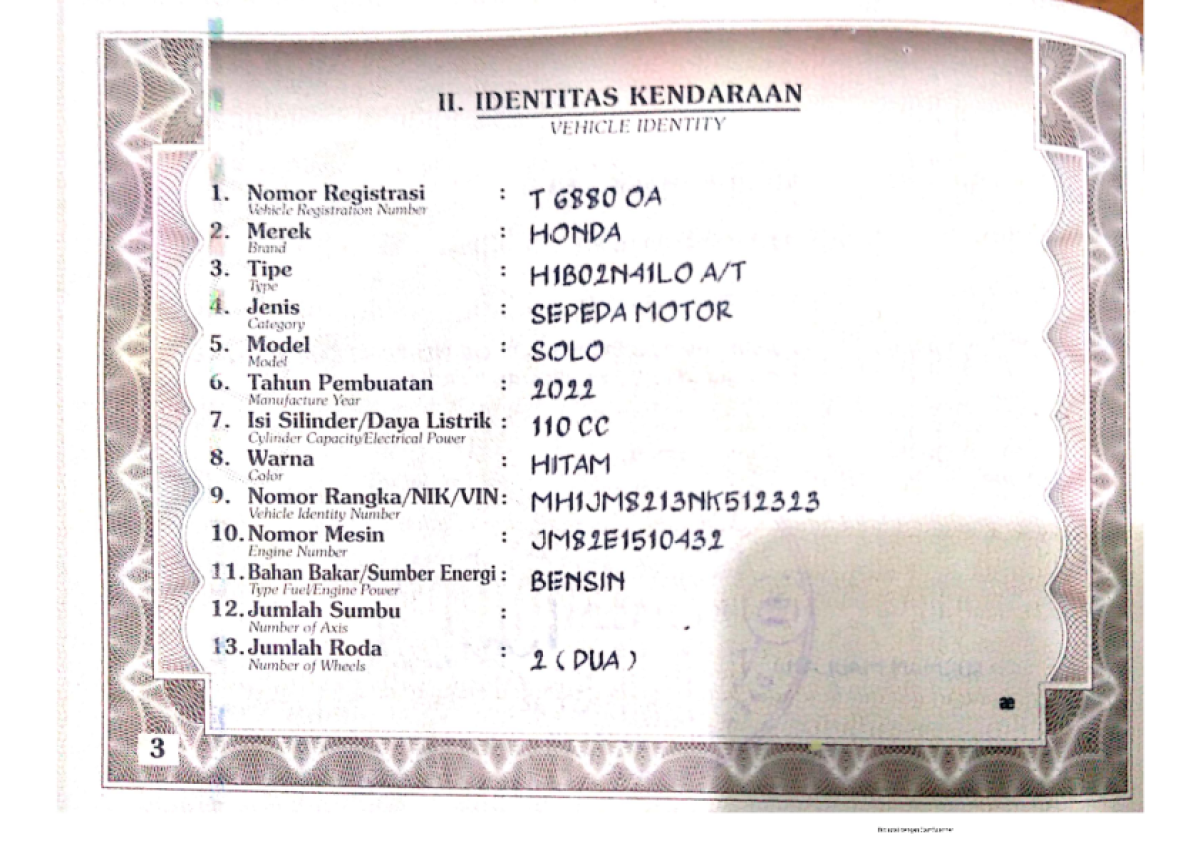 II. IDENTITAS KENDARAAN
VEHICLE IDENTITY
1. Nomor Registrasi : T 6880 OA
Vehicle Registration Number
2. Merek : HONDA
Brand
3. Tipe : H1B02N41L0 A/T
Type
4. Jenis : SEPEDA MOTOR
Category
5. Model : SOLO
Model
6. Tahun Pembuatan : 2022
Manufacture Year
7. Isi Silinder/Daya Listrik : 110 CC
Cylinder Capacity/Electrical Power
8. Warna : HITAM
Color
9. Nomor Rangka/NIK/VIN : MH1JM8213NK512323
Vehicle Identity Number
10. Nomor Mesin : JM82E1510432
Engine Number
11. Bahan Bakar/Sumber Energi : BENSIN
Type Fuel/Engine Power
12. Jumlah Sumbu :
Number of Axis
13. Jumlah Roda : 2 ( DUA )
Number of Wheels
æ
3